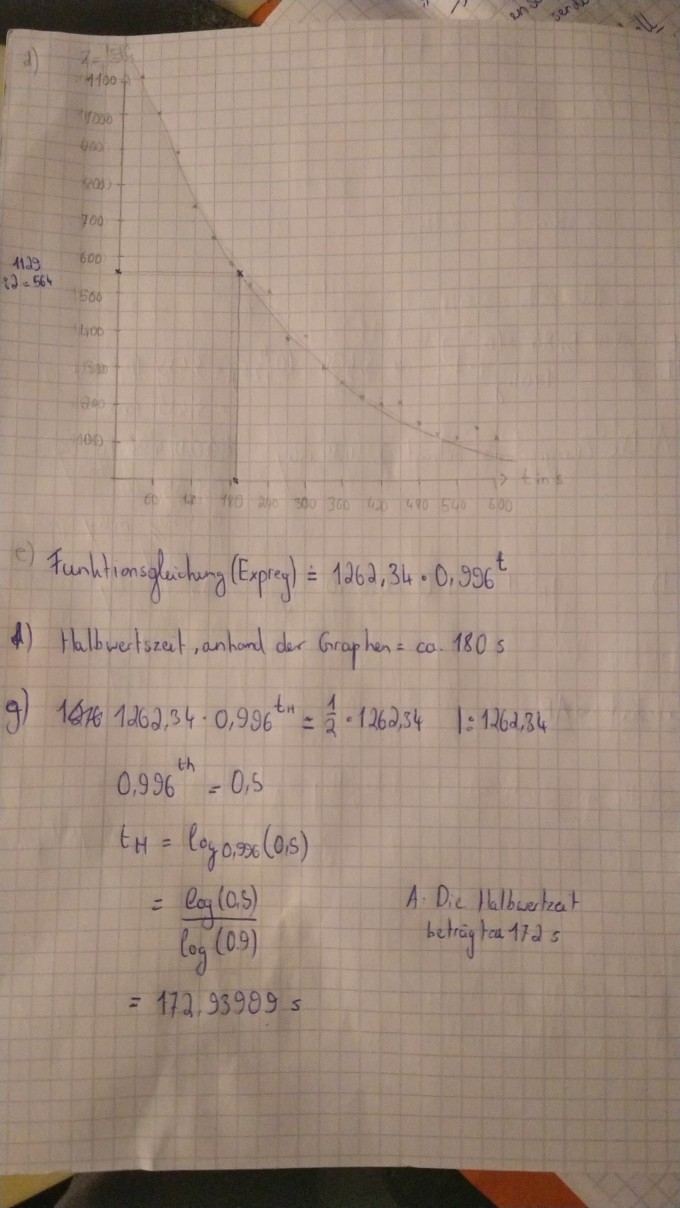 d)
1100
1000
900
800
700
600
1129
:2 = 564
500
400
300
200
100
60
120
180
240
300
360
420
480
540
600
t in s
e) Funktionsgleichung (Expreg) ≐ 1262,34 · 0,996^t
f) Halbwertszeit, anhand der Graphen = ca. 180 s
g) 1262,34 · 0,996^tH = 1/2 · 1262,34 |: 1262,34
0,996^th = 0,5
tH = log0,996(0,5)
= log(0,5)
log(0.9)
A: Die Halbwertzeit
beträgt ca 172 s
= 172,93989 s